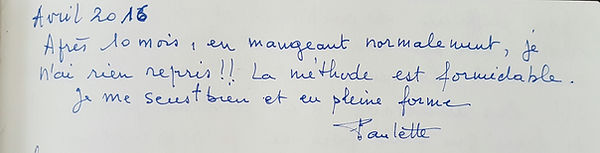 Avril 2016
Après 10 mois, en mangeant normalement, je
n'ai rien repris!! La méthode est formidable.
Je me sens + bien et en pleine forme
Paulette